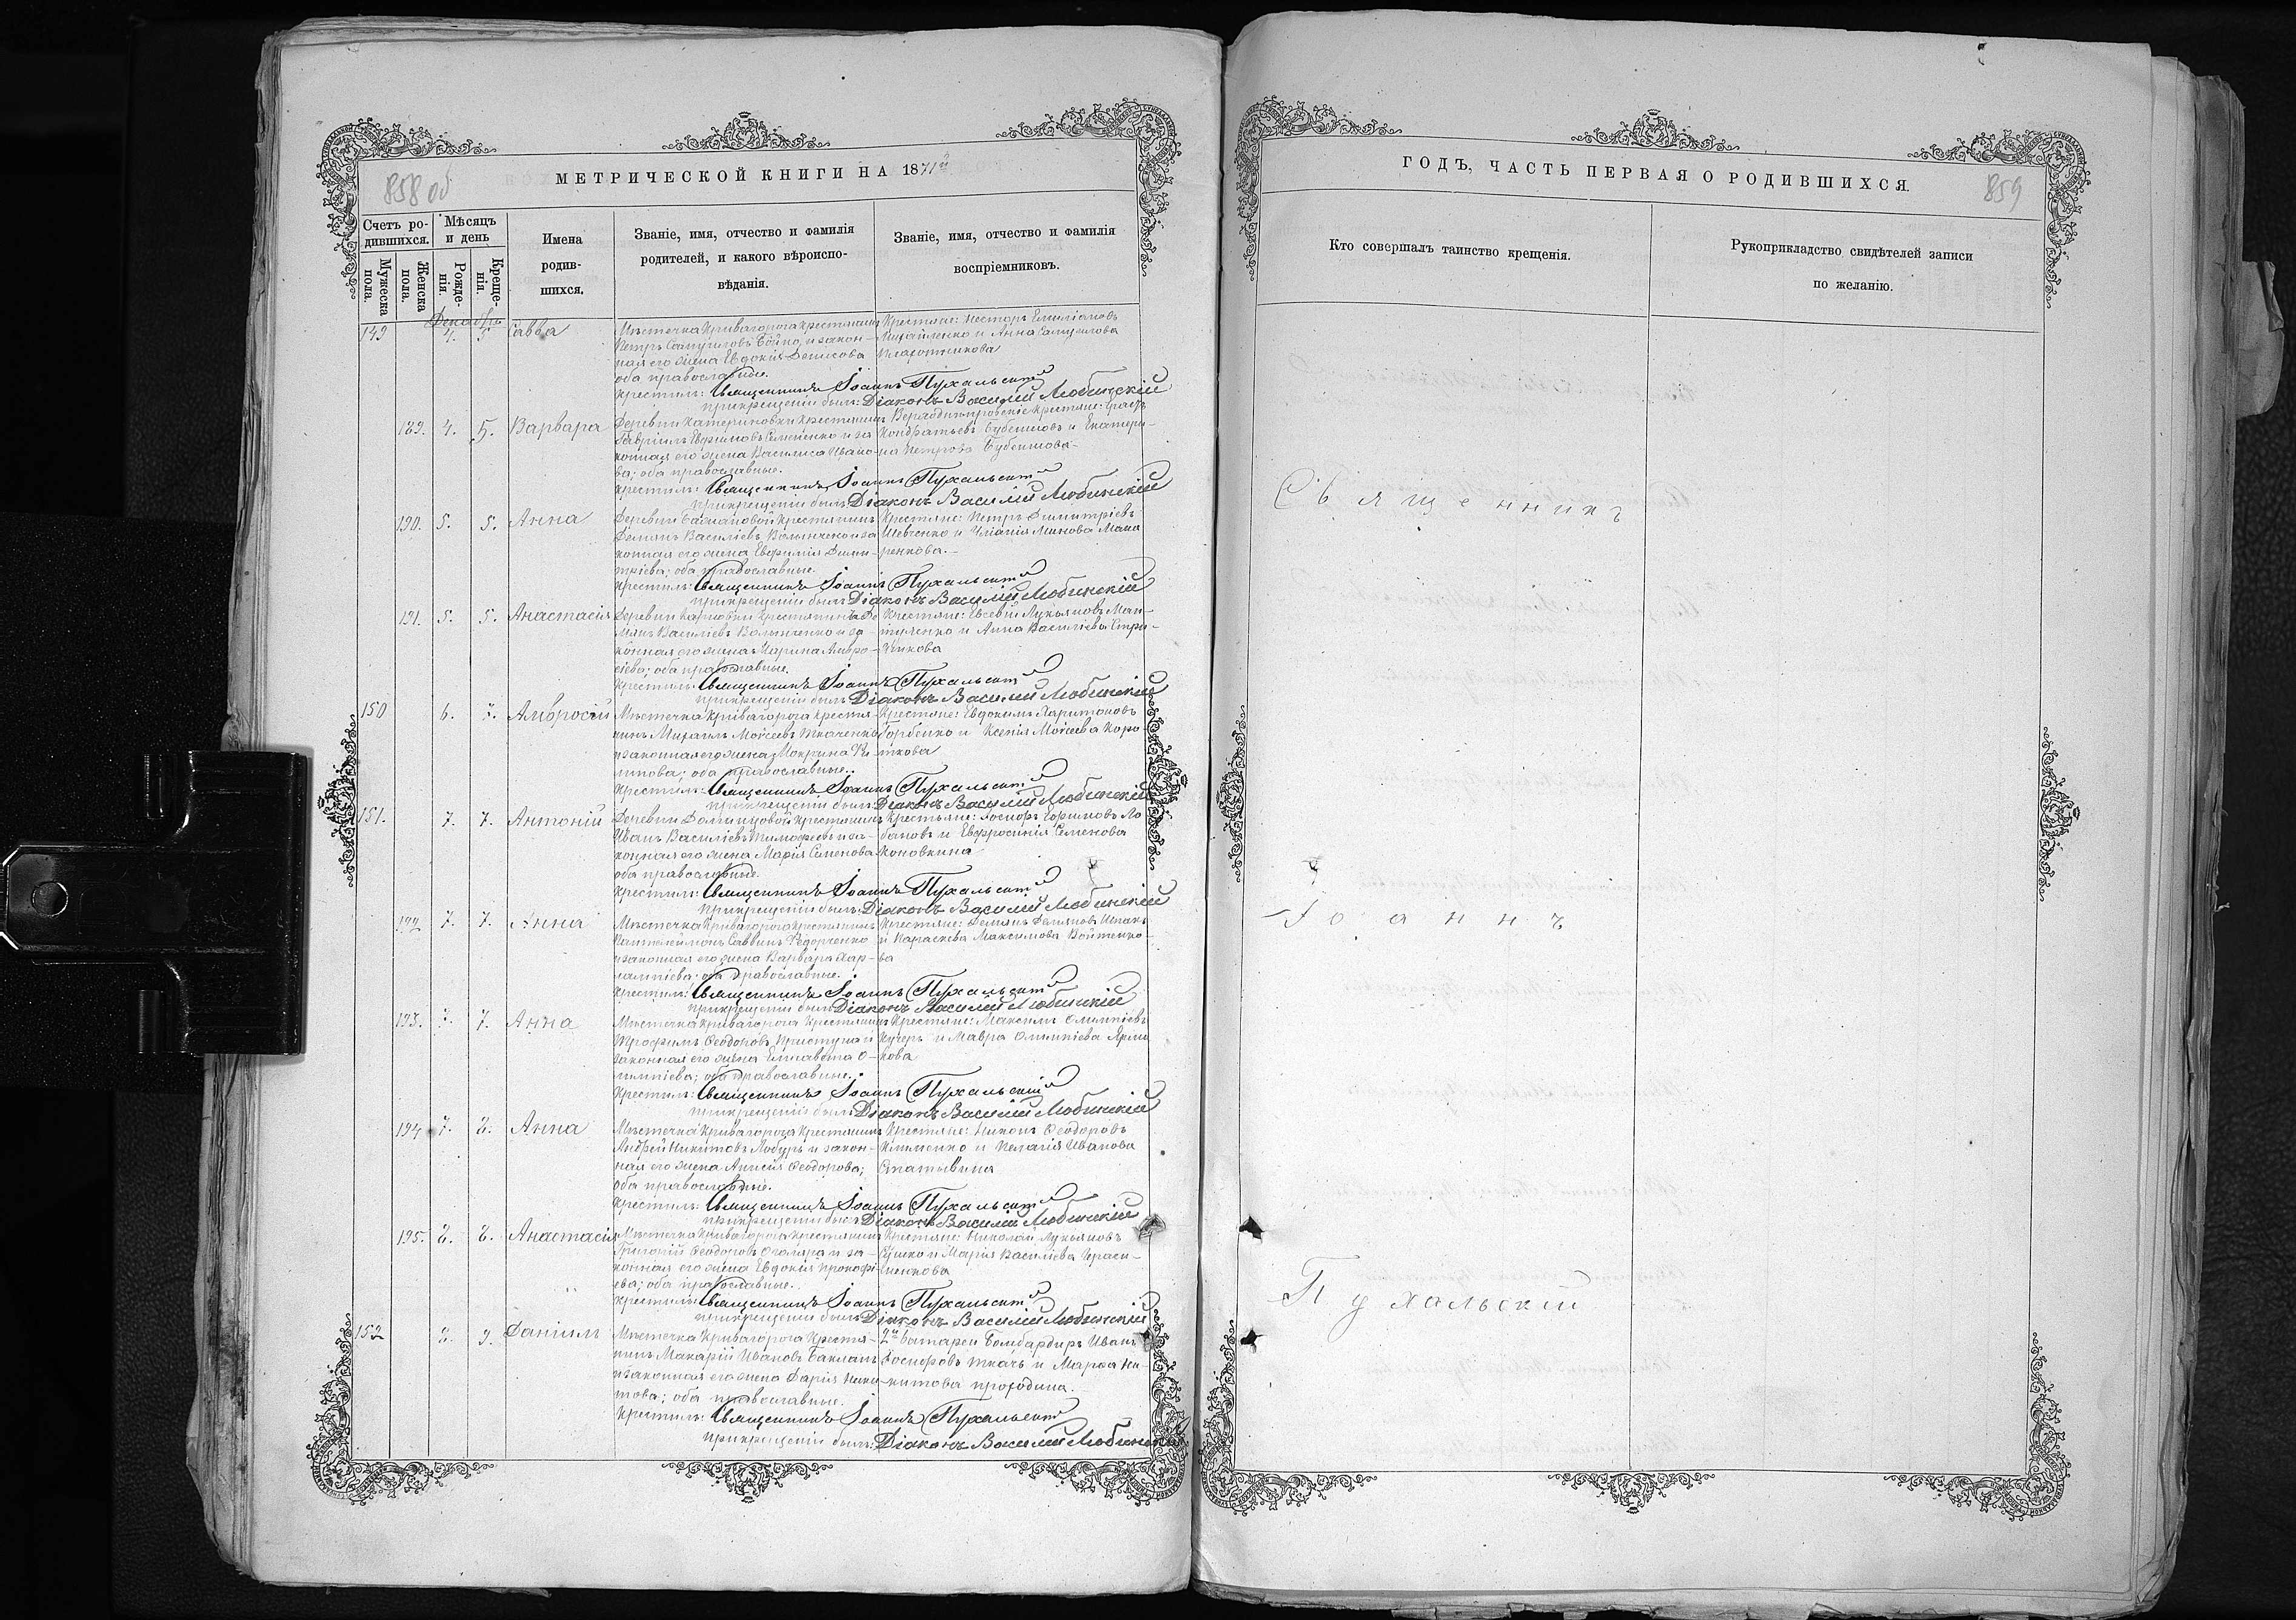 858 об
МЕТРИЧЕСКОЙ КНИГИ НА 1871й
Счетъ ро-
дившихся.
Мужеска
пола.
Женска
пола.
Мѣсяцъ
и день
Рожде-
нія.
Креще-
нія.
Имена
родив-
шихся.
Званіе, имя, отчество и фамилія
родителей, и какого вѣроиспо-
вѣданія.
Званіе, имя, отчество и фамилія
воспріемниковъ.
Декабрь
149 4. 5 Савва
Мѣстечка Криваго рога крестьянинъ
Петръ Самуиловъ Бойко, и закон-
ная его жена Евдокія Денисова
оба православные.
Крестьяне: Несторъ Емиліановъ
Михайленко и Анна Самуилова
Плахотникова
Крестилъ: Священникъ Іоаннъ Пухальскій
при крещеніи былъ: Діаконъ Василій Любинскій
189. 4. 5. Варвара
Деревни Катериновки крестьянинъ
Гавріилъ Евфимовъ Семененко и за
конная его жена Василиса Ивано-
ва; оба православные.
Верходнѣпровскіе крестьяне:
Кондратьевъ Бубенцовъ и Екатери-
на Петрова Бубенцова
Крестилъ: Священникъ Іоаннъ Пухальскій
при крещеніи былъ Діаконъ Василій Любинскій
190. 5. 5. Анна
Деревни крестьянинъ
Демьянъ Василіевъ и за
конная его жена Евфимія Дими-
тріева; оба православные.
Крестьяне: Петръ Димитріевъ
Шевченко и Минова Мака
ренкова.
Крестилъ: Священникъ Іоаннъ Пухальскій
при крещеніи былъ Діаконъ Василій Любинскій
191. 5. 5. Анастасія
Деревни Карповки крестьянинъ Де
мьянъ Василіевъ Волынченко и за-
конная его жена Марина Амвро-
сіева; оба православные.
Крестьяне: Евсевій Лукьяновъ
и Анна Василіева
Крестилъ: Священникъ Іоаннъ Пухальскій
при крещеніи былъ Діаконъ Василій Любинскій
150 6. 7. Амвросій
Мѣстечка Криваго рога крестья-
нинъ Михаилъ Моѵсеевъ Ткаченко
и законная его жена Мокрина Фи
липова; оба православные.
Крестьяне: Евдокимъ Харитоновъ
Горбенко и Ксенія Моѵсеева Коро-
ткова
Крестилъ: Священникъ Іоаннъ Пухальскій
при крещеніи былъ: Діаконъ Василій Любинскій
151. 7. 7. Антоній
Деревни крестьянинъ
Иванъ Василіевъ Тимофеевъ и за-
конная его жена Марія Семенова
оба православные.
Крестьяне: Іосифъ Ефимовъ Ло
бановъ и Евфросинія Семенова
Коновкина
Крестилъ: Священникъ Іоаннъ Пухальскій
При крещеніи былъ: Діаконъ Василій Любинскій
192 7. 7. Анна
Мѣстечка Криваго рога крестьянинъ
Пантелеймонъ Саввинъ Федорченко
и законная его жена Варвара Хар-
лампіева; оба православные.
Крестьяне: Демьянъ Демьяновъ Шпакъ
и Параскева Максимова Войтенко-
ва
Крестилъ: Священникъ Іоаннъ Пухальскій
при крещеніи былъ Діаконъ Василій Любинскій
193. 7. 7. Анна
Мѣстечка Криваго рога крестьянинъ
Трофимъ Ѳеодоровъ Приступа и
законная его жена Елисавета О-
лимпіева; оба православные.
Крестьяне: Максимъ Олимпіевъ
Кучеръ и Мавра Олимпіева
Крестилъ: Священникъ Іоаннъ Пухальскій
при крещеніи былъ Діаконъ Василій Любинскій
194 7. 8. Анна
Мѣстечка Криваго рога крестьянинъ
Андрей Никитовъ Лобуръ и закон-
ная его жена Анисія Ѳеодорова;
оба православные.
Крестьяне: Никонъ Ѳеодоровъ
Клименко и Пелагія Иванова
Крестилъ: Священникъ Іоаннъ Пухальскій
при крещеніи былъ: Діаконъ Василій Любинскій
195. 8. 8. Анастасія
Мѣстечка Криваго рога крестьянинъ
Григорій Ѳеодоровъ и за-
конная его жена Евдокія Прокофі-
ева; оба православные.
Крестьяне: Николай Лукьяновъ
Сушко и Марія Василіева Гераси-
менкова
Крестилъ: Священникъ Іоаннъ Пухальскій
при крещеніи былъ Діаконъ Василій Любинскій
152 8. 9. Даніилъ
Мѣстечка Криваго рога крестья-
нинъ Макарій Ивановъ Бакланъ
и законная его жена Дарія Ники
това; оба православные.
батареи Бомбардиръ Иванъ
Іосифовъ Ткачъ и Марѳа Ни-
китова
Крестилъ: Священникъ Іоаннъ Пухальскій
при крещеніи былъ: Діаконъ Василій Любинскій
ГОДЪ, ЧАСТЬ ПЕРВАЯ О РОДИВШИХСЯ.
859
Кто совершалъ таинство крещенія.
Рукоприкладство свидѣтелей записи
по желанію.
Священникъ
Іоаннъ
Пухальскій